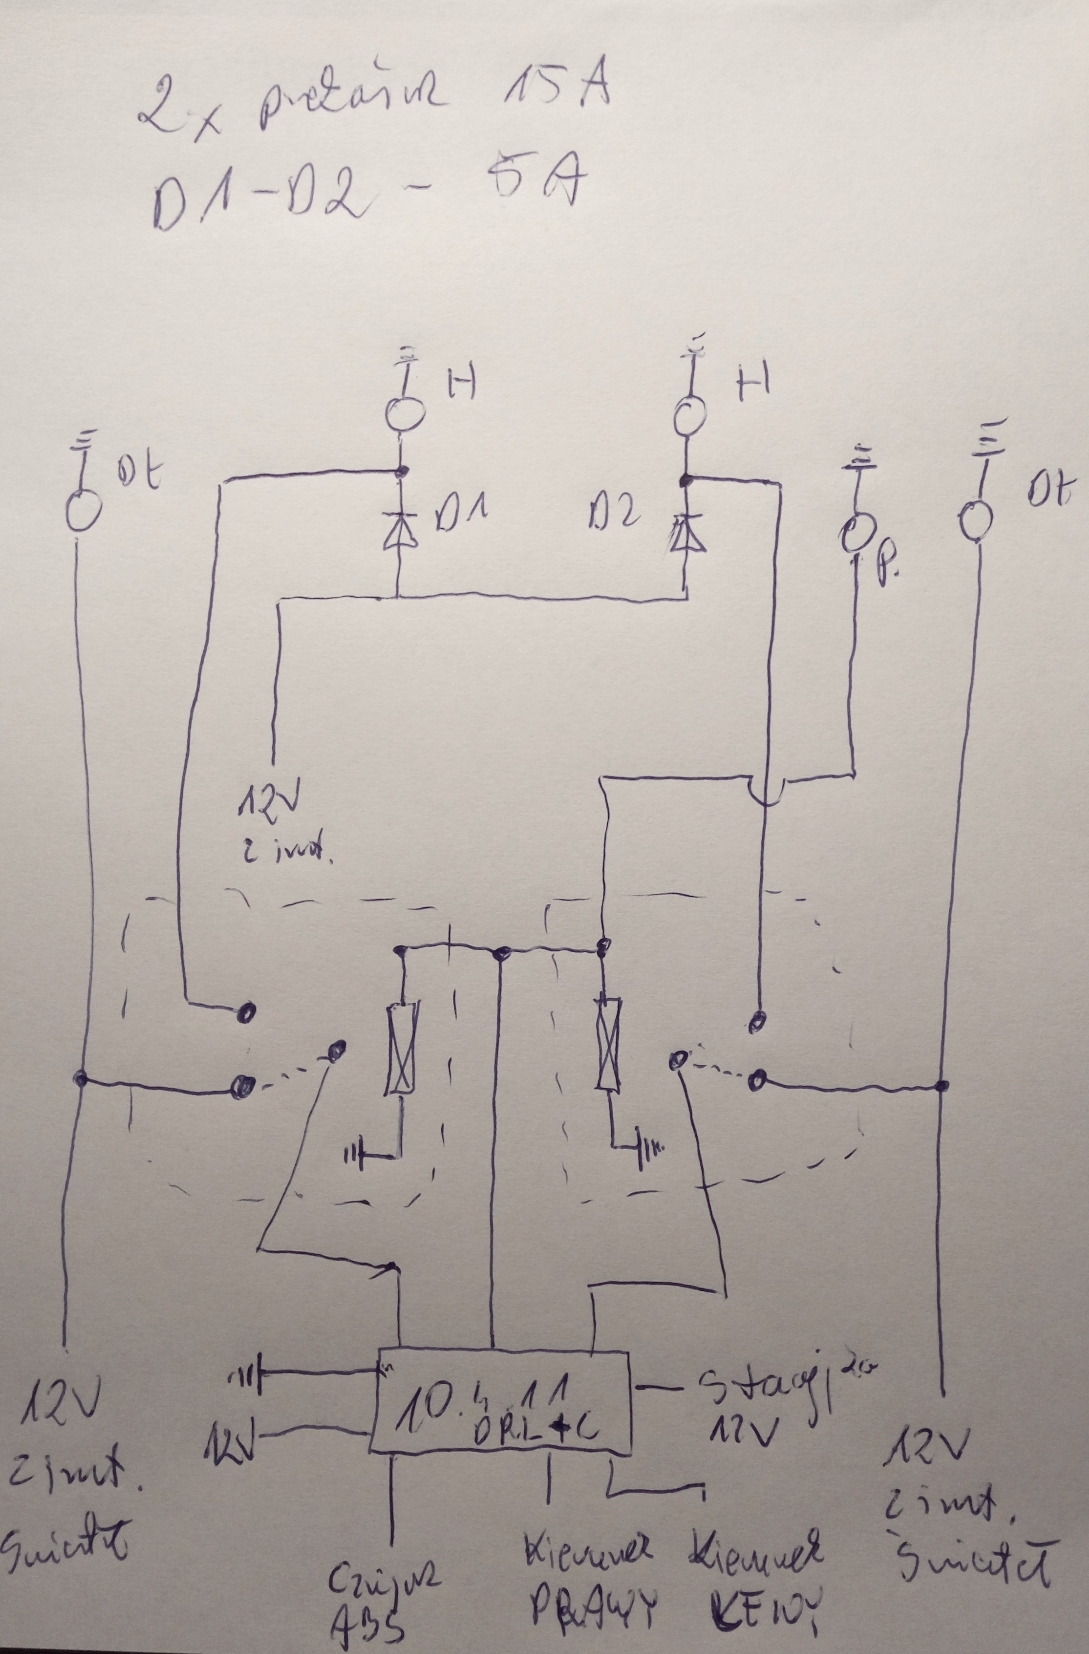 2x przekaźnik 15A
D1-D2 - 5A
H
H
Dt
D1
D2
P.
Dt
12V
z inst.
10.4.11
DRL+C
Stacyjka
12V
12V
12V
z inst.
świateł
12V
z inst.
świateł
Czujnik
ABS
Kierunek
PRAWY
Kierunek
LEWY